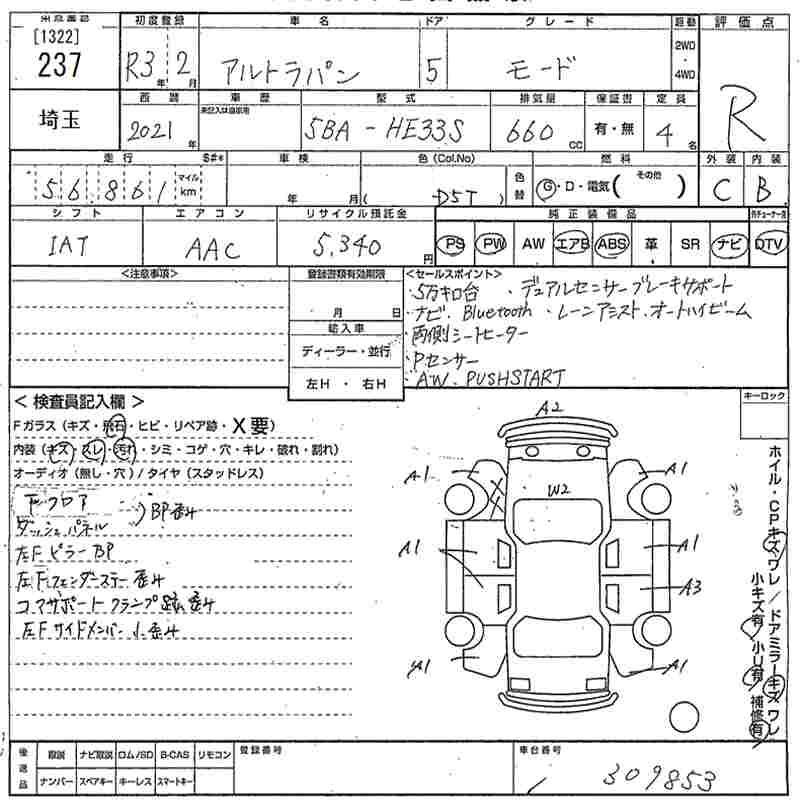 [1322]
237
初度登録 車名 ドア グレード 駆動 評価点
R3年 2月 アルトラパン 5 モード 2WD・4WD R
埼玉
西暦 車歴 型式 排気量 保証書 定員
2021年 未記入は自家用 5BA-HE33S 660cc 有・無 4名
走行 S#* 車検 色(Col.No) 燃料 外装 内装
56,861 マイル km 年 月 ( D5T ) 色替 G・D・電気( その他 ) C B
シフト エアコン リサイクル預託金 純正装備品
IAT AAC 5,340円 PS PW AW エアB ABS 革 SR ナビ DTV
<注意事項> 登録書類有効期限 <セールスポイント>
月 日
輸入車
ディーラー・並行
左H・右H
・5万キロ台 ・デュアルセンサーブレーキサポート
・ナビ. Bluetooth ・レーンアシスト.オートハイビーム
・両側シートヒーター
・Pセンサー
・AW. PUSHSTART
<検査員記入欄> キーロック
Fガラス(キズ・飛石・ヒビ・リペア跡・X要)
内装(キズ・スレ・汚れ・シミ・コゲ・穴・キレ・破れ・割れ)
オーディオ(無し・穴)/タイヤ(スタッドレス)
Fフロア
ダッシュパネル )BP歪み
左FピラーBP
左Fフェンダーステー歪み
コアサポートクランプ跡歪み
左Fサイドメンバー小歪み
A2
A1 A1
W2
A1 A1
A3
A1 A1
ホイル・CPキズワレ/ドアミラーキズワレ
小キズ有 小U有 補修有
後送品 取説 ナビ取説 ロム/SD B-CAS リモコン 登録番号 車台番号
ナンバー スペアキー キーレス スマートキー 309853